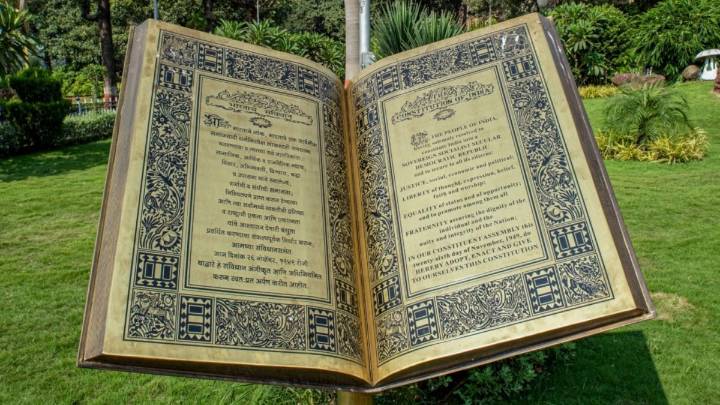 भारताचे संविधान
आम्ही भारताचे लोक, भारताचे एक सार्वभौम
समाजवादी धर्मनिरपेक्ष लोकशाही गणराज्य
घडविण्याचा व त्याच्या सर्व नागरिकांस :
सामाजिक, आर्थिक व राजनैतिक न्याय;
विचार, अभिव्यक्ती, विश्वास, श्रद्धा
व उपासना यांचे स्वातंत्र्य;
दर्जाची व संधीची समानता;
निश्चितपणे प्राप्त करुन देण्याचा
आणि त्या सर्वांमध्ये व्यक्तीची प्रतिष्ठा
व राष्ट्राची एकता आणि एकात्मता
यांचे आश्वासन देणारी बंधुता
प्रवर्धित करण्याचा संकल्पपूर्वक निर्धार करुन,
आमच्या संविधानसभेत
आज दिनांक २६ नोव्हेंबर, १९४९ रोजी
याद्वारे हे संविधान अंगीकृत आणि अधिनियमित
करुन स्वतःप्रत अर्पण करीत आहोत.
CONSTITUTION OF INDIA
WE THE PEOPLE OF INDIA,
having solemnly resolved to
constitute India into a
SOVEREIGN SOCIALIST SECULAR
DEMOCRATIC REPUBLIC
and to secure to all its citizens:
JUSTICE, social, economic and political;
LIBERTY of thought, expression, belief,
faith and worship;
EQUALITY of status and of opportunity;
and to promote among them all
FRATERNITY assuring the dignity of the
individual and the
unity and integrity of the Nation;
IN OUR CONSTITUENT ASSEMBLY this
twenty-sixth day of November, 1949, do
HEREBY ADOPT, ENACT AND GIVE
TO OURSELVES THIS CONSTITUTION